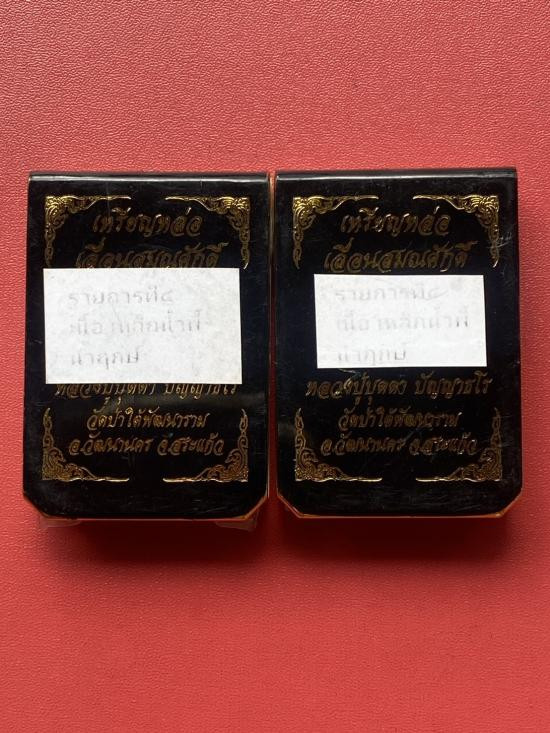 เหรียญหล่อ
เลื่อนสมณศักดิ์
รายการที่๔
เนื้อเหล็กน้ำพี้
นำฤกษ์
หลวงปู่บุดดา ปัญญาธโร
วัดป่าใต้พัฒนาราม
อ.วัฒนานคร จ.สระแก้ว
เหรียญหล่อ
เลื่อนสมณศักดิ์
รายการที่๔
เนื้อเหล็กน้ำพี้
นำฤกษ์
หลวงปู่บุดดา ปัญญาธโร
วัดป่าใต้พัฒนาราม
อ.วัฒนานคร จ.สระแก้ว